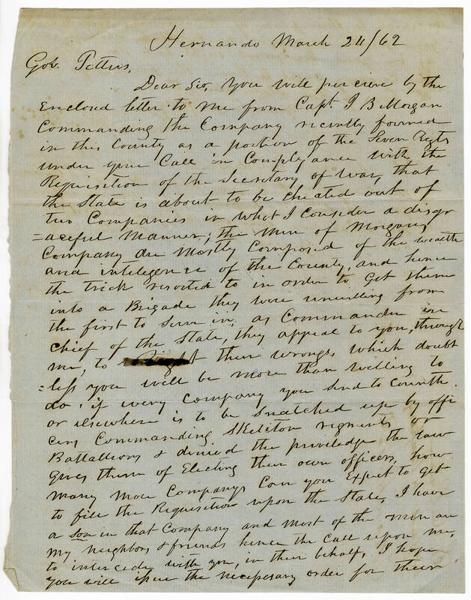 Hernando March 24/62
Gov. Pettus,
Dear Sir, You will perceive by the
Enclosed letter to me from Capt J B Morgan
Commanding the Company recently formed
in this County as a portion of the Seven Regts
under your Call in Compliance with the
Requisition of the Secretary of War, that
the State is about to be cheated out of
two Companies in what I consider a disgr
=aceful manner, the men of Morgans
Company are mostly composed of the wealth
and inteligence of the County, and hence
the trick resorted to in order to get them
into a Brigade they were unwilling from
the first to serve in, as Commander in
chief of the State, they appeal to you, through
me, to their wrongs, which doubt
=less you will be more than willing to
do, if every company you send to Corinth
or elsewhere is to be snatched up by offi
cers Commanding Skeleton regments or
Battallions & denied the priviledge the law
gives them of Electing their own officers, how
many more Companys Can you Expect to get
to fill the Requisition upon the State, I have
a son in that Company and most of the men are
my neighbors & friends hence the Call upon me,
to intercede with you, in their behalf, I hope
you will issue the necessary order for their